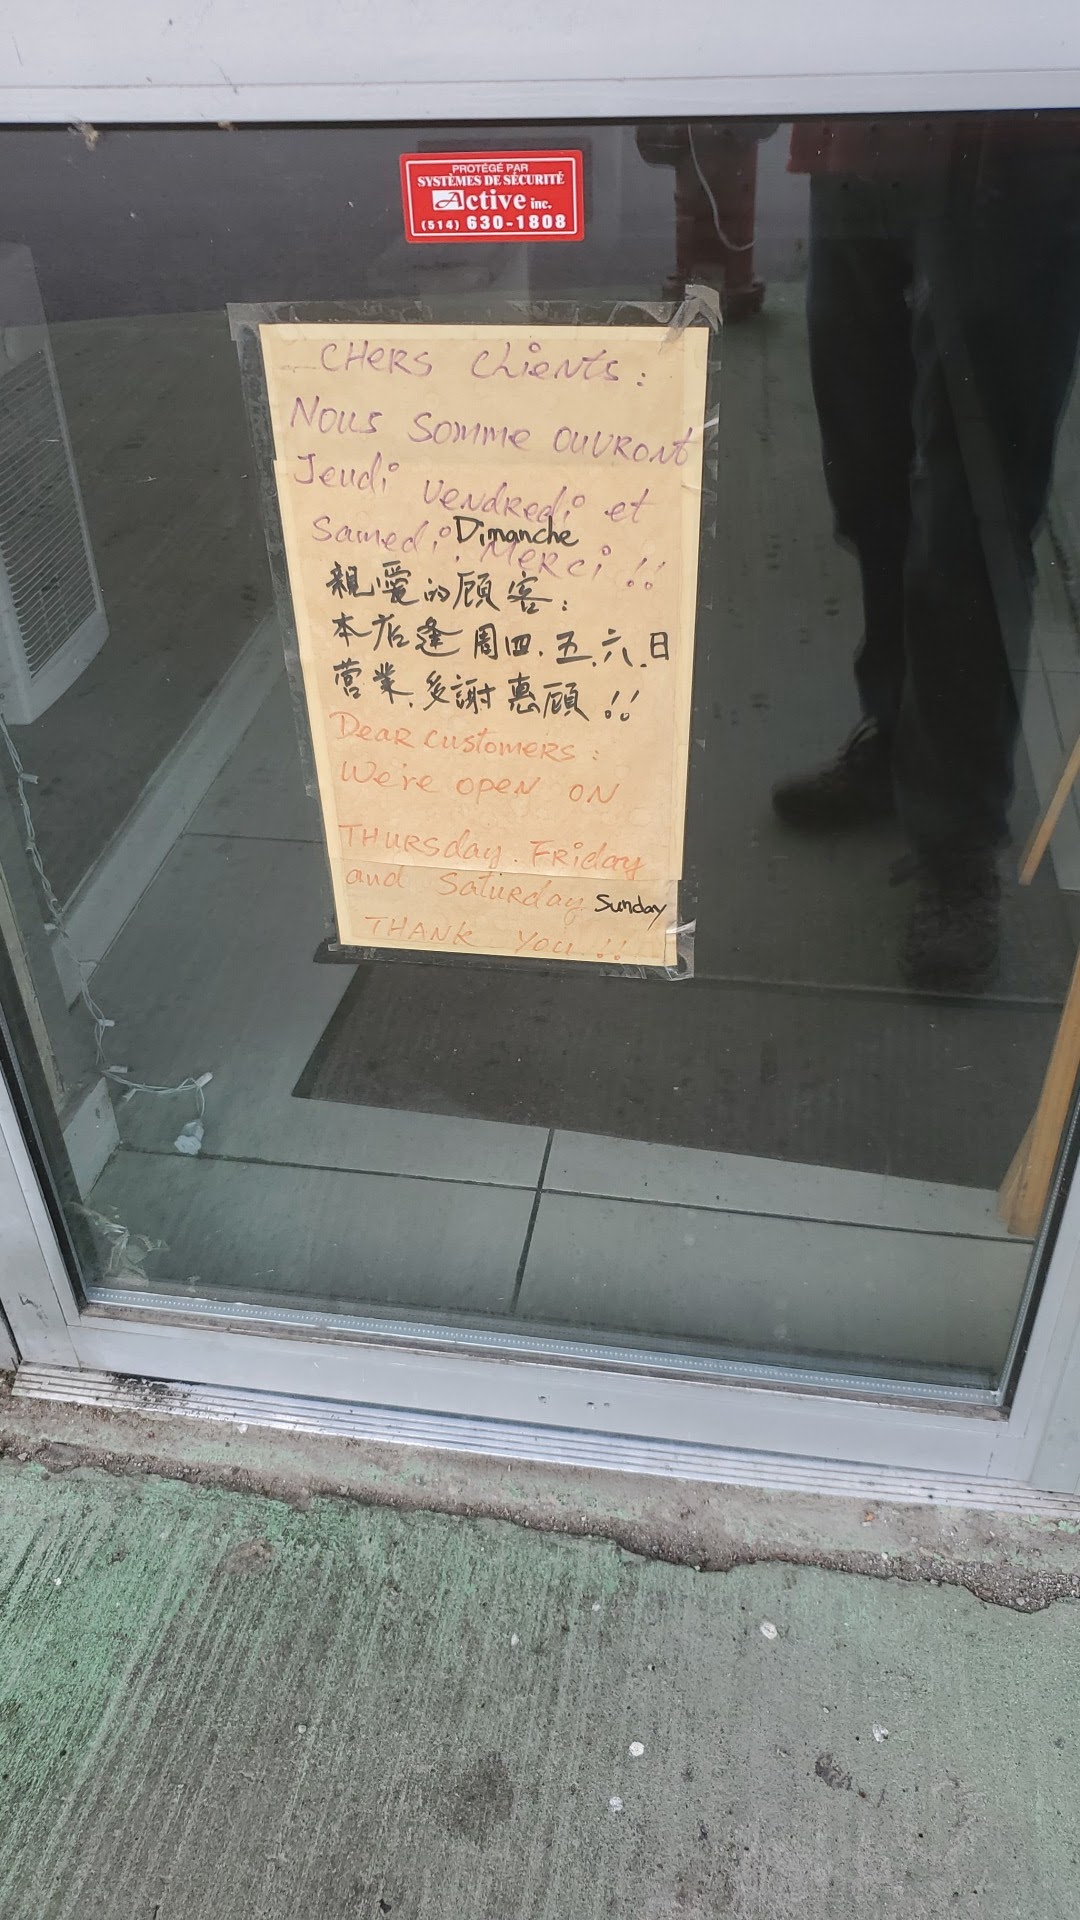 PROTÉGÉ PAR
SYSTÈMES DE SÉCURITÉ
Active inc.
(514) 630-1808
CHERS Clients:
Nous somme ouvront
Jeudi vendredi et
Samedi. Dimanche
Merci !!
親愛的顧客:
本店逢周四.五.六.日
营業.多謝惠顧!!
Dear customers:
We're open on
THURSday. FRiday
and Saturday Sunday
THANK You !!